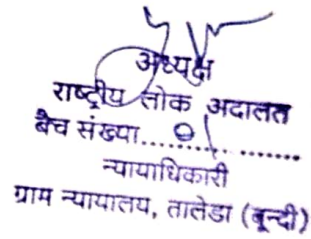 अध्यक्ष
राष्ट्रीय लोक अदालत
बैच संख्या....01............
न्यायाधिकारी
ग्राम न्यायालय, तालेडा (बून्दी)